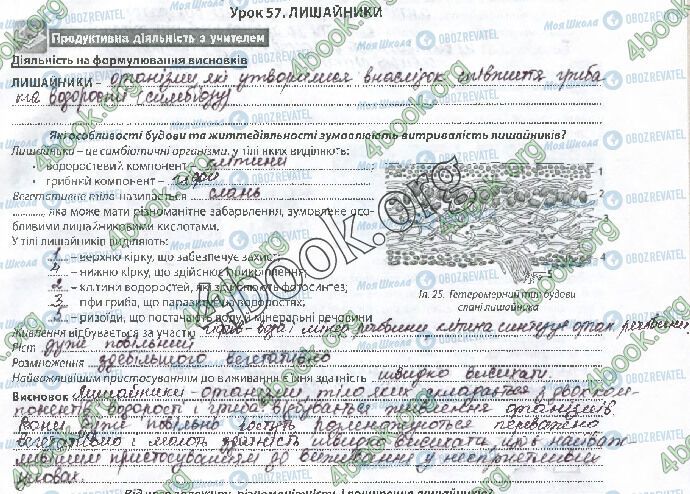 Урок 57. ЛИШАЙНИКИ
Продуктивна діяльність з учителем
Діяльність на формулювання висновків
ЛИШАЙНИКИ – організми які утворилися внаслідок співжиття гриба
та водорості (симбіозу)
Які особливості будови та життєдіяльності зумовлюють витривалість лишайників?
Лишайники – це симбіотичні організми, у тілі яких виділяють:
• водоростевий компонент – клітини
• грибний компонент – гіфи
Вегетативне тіло називається слань
, яка може мати різноманітне забарвлення, зумовлене осо-
бливими лишайниковими кислотами.
У тілі лишайників виділяють:
1 – верхню кірку, що забезпечує захист;
– нижню кірку, що здійснює прикріплення;
2 – клітини водоростей, які здійснюють фотосинтез;
3 – гіфи гриба, що паразитують на водоростях;
– ризоїди, що постачають воду й мінеральні речовини
1
2
3
4
5
Іл. 25. Гетеромерний тип будови
слані лишайника
Живлення відбувається за участю гіфів – вода і мінер. речовини клітина синтезує орган. речовини
Ріст дуже повільний
Розмноження здебільшого вегетативно
Найважливішим пристосуванням до виживання є їхня здатність швидко висихати.
Висновок Лишайники – організми, тіло яких складається з двох ком-
понентів водорості і гриба відбувається живлення організмів.
Вони дуже повільно ростуть розмножуються переважно
вегетативно і мають здатність швидко висихати, що є найваж-
ливішим пристосуванням до виживання у несприятливих
умовах.
4book.org
Моя Школа
OBOZREVATEL